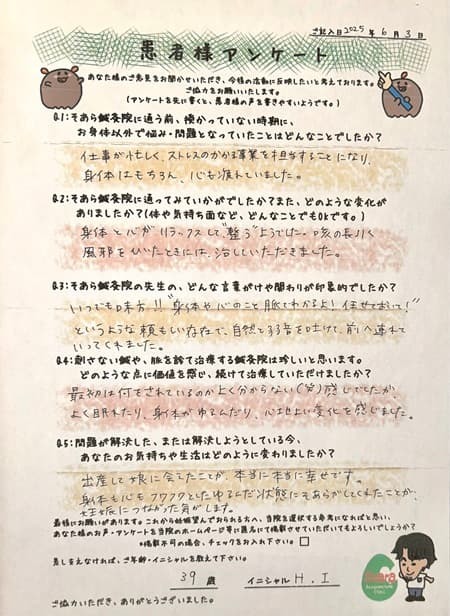 ご記入日2025年 6月 3日
患者様アンケート
あなた様のご意見をお聞かせいただき、今後の活動に反映したいと考えております。
ご協力をお願いいたします。
(アンケートを先に書くと、患者様の声を書きやすいようです。)
Q.1:そあら鍼灸院に通う前、預かっていない時期に、
お身体以外で悩み・問題となっていたことはどんなことでしたか?
仕事が忙しく、ストレスのかかる事業を担当することになり、
身体はもちろん、心も疲れていました。
Q.2:そあら鍼灸院に通ってみていかがでしたか?また、どのような変化が
ありましたか?(体や気持ち面など、どんなことでもOKです。)
身体と心が"リラックスして、整う"ようでした。咳の長引く
風邪をひいたときには、治していただきました。
Q.3:そあら鍼灸院の先生の、どんな言葉がけや関わりが印象的でしたか?
いつでも味方!!"身体や心のこと脈でわかるよ!任せておいて!"
というような頼もしい存在で、自然と弱音を吐けて、前へ連れて
いってくれました。
Q.4:刺さない鍼や、脈を診て治療する鍼灸院は珍しいと思います。
どのような点に価値を感じ、続けて治療していただけましたか?
最初は何をされているのかよく分からない(笑)感じでしたが、
よく眠れたり、身体がゆるんだり、心地よい変化を感じました。
Q.5:問題が解決した、または解決しようとしている今、
あなたのお気持ちや生活はどのように変わりましたか?
出産して娘に会えたことが、本当に本当に幸せです。
身体も心もフワフワとしたゆるんだ状態にそあらがしてくれたことが、
妊娠につながった気がします。
最後にお願いがあります。これから妊娠望んでおられる方へ、当院を選択する参考になればと思い、
あなた様のお声・アンケートを当院のホームページ等に匿名にて掲載させていただいてもよろしいでしょうか?
*掲載不可の場合、チェックをお入れ下さい。
差し支えなければ、ご年齢・イニシャルを教えて下さい。
39 歳 イニシャル H.I
ご協力いただき、ありがとうございました。
Soara
Acupuncture
Clinic